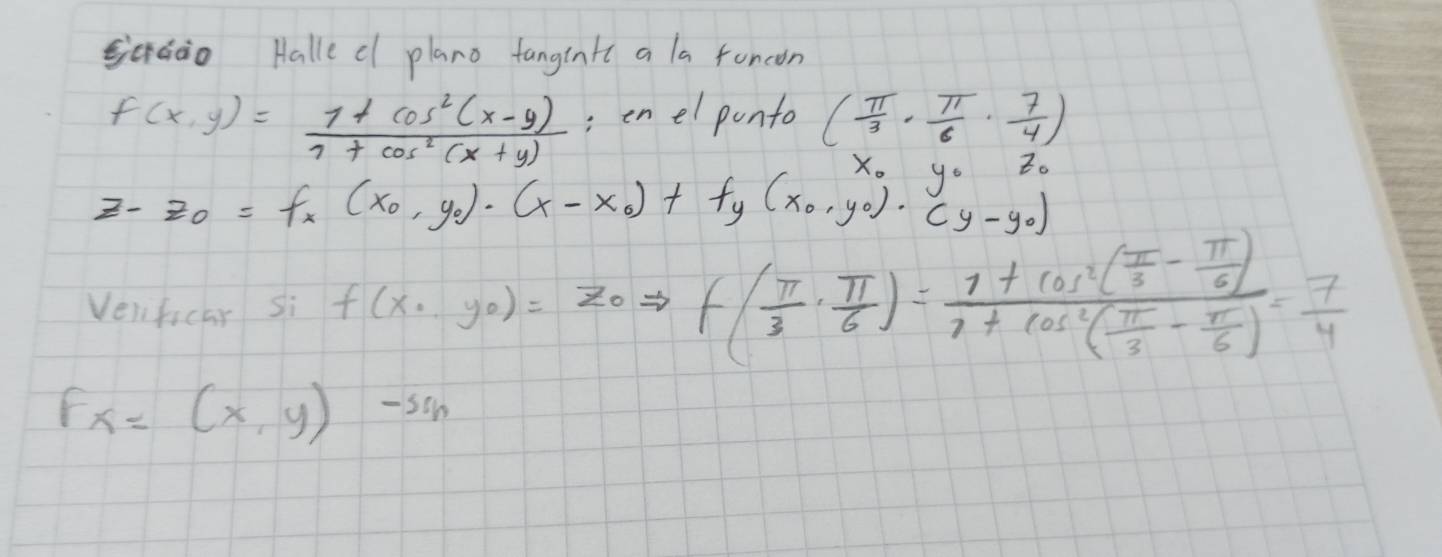 Ejercicio Halle el plano tangente a la funcion
f(x,y) = \frac{1 + cos²(x-y)}{1 + cos²(x+y)}; en el punto (\frac{π}{3}, \frac{π}{6}, \frac{7}{4})
x₀ y₀ z₀
z - z₀ = fₓ (x₀, y₀)·(x - x₀) + f_y (x₀, y₀)·(y - y₀)
Verificar si f(x₀, y₀) = z₀ ⇒ f(\frac{π}{3}, \frac{π}{6}) = \frac{1 + cos²(\frac{π}{3} - \frac{π}{6})}{1 + cos²(\frac{π}{3} - \frac{π}{6})} = \frac{7}{4}
Fx = (x, y) -sen